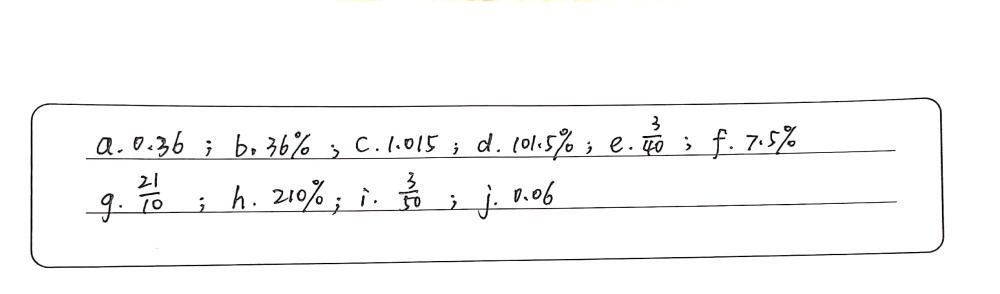 a. 0.36 ; b. 36% ; c. 1.015 ; d. 101.5% ; e. 3/40 ; f. 7.5%
g. 21/10 ; h. 210% ; i. 3/50 ; j. 0.06